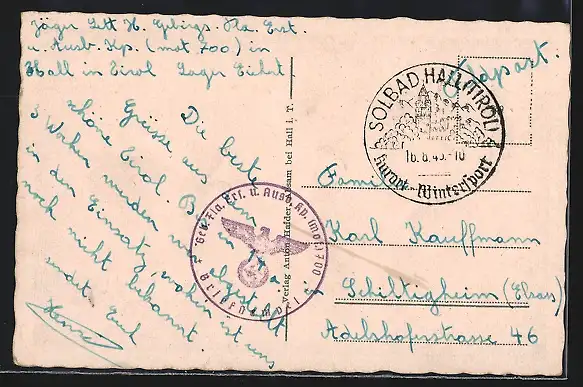 Jäger Sett H. Gebirgs. Fla. Ers.
u. Ausb. Kp. (mot 700) in
Hall in Tirol Lager Eichat
Die besten
Grüsse aus dem
schöne Tirol
3 Wochen werden wir
in den Einsatz, wohin ist uns
noch nicht bekannt
sendet Euch
Verlag Anton Hafder, Absam bei Hall i. T.
Geb. Fla. Ers. u. Ausb. Kp. (mot.) 700
Briefstempel
SOLBAD HALL (TIROL)
16.8.43.-10
Kurort-Wintersport
Feldpost.
Familie
Karl Kauffmann
Schiltigheim (Elsass)
Adelshofstrasse 46